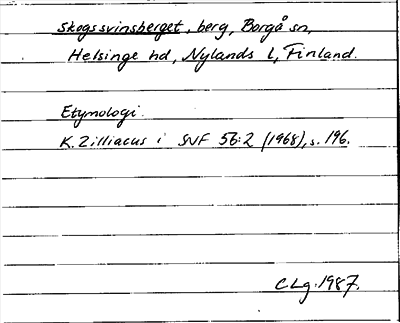 Skogssvinsberget, berg, Borgå sn,
Helsinge hd, Nylands l, Finland.
Etymologi.
K. Zilliacus i SVF 56:2 (1968), s. 196.
CLg. 1987.